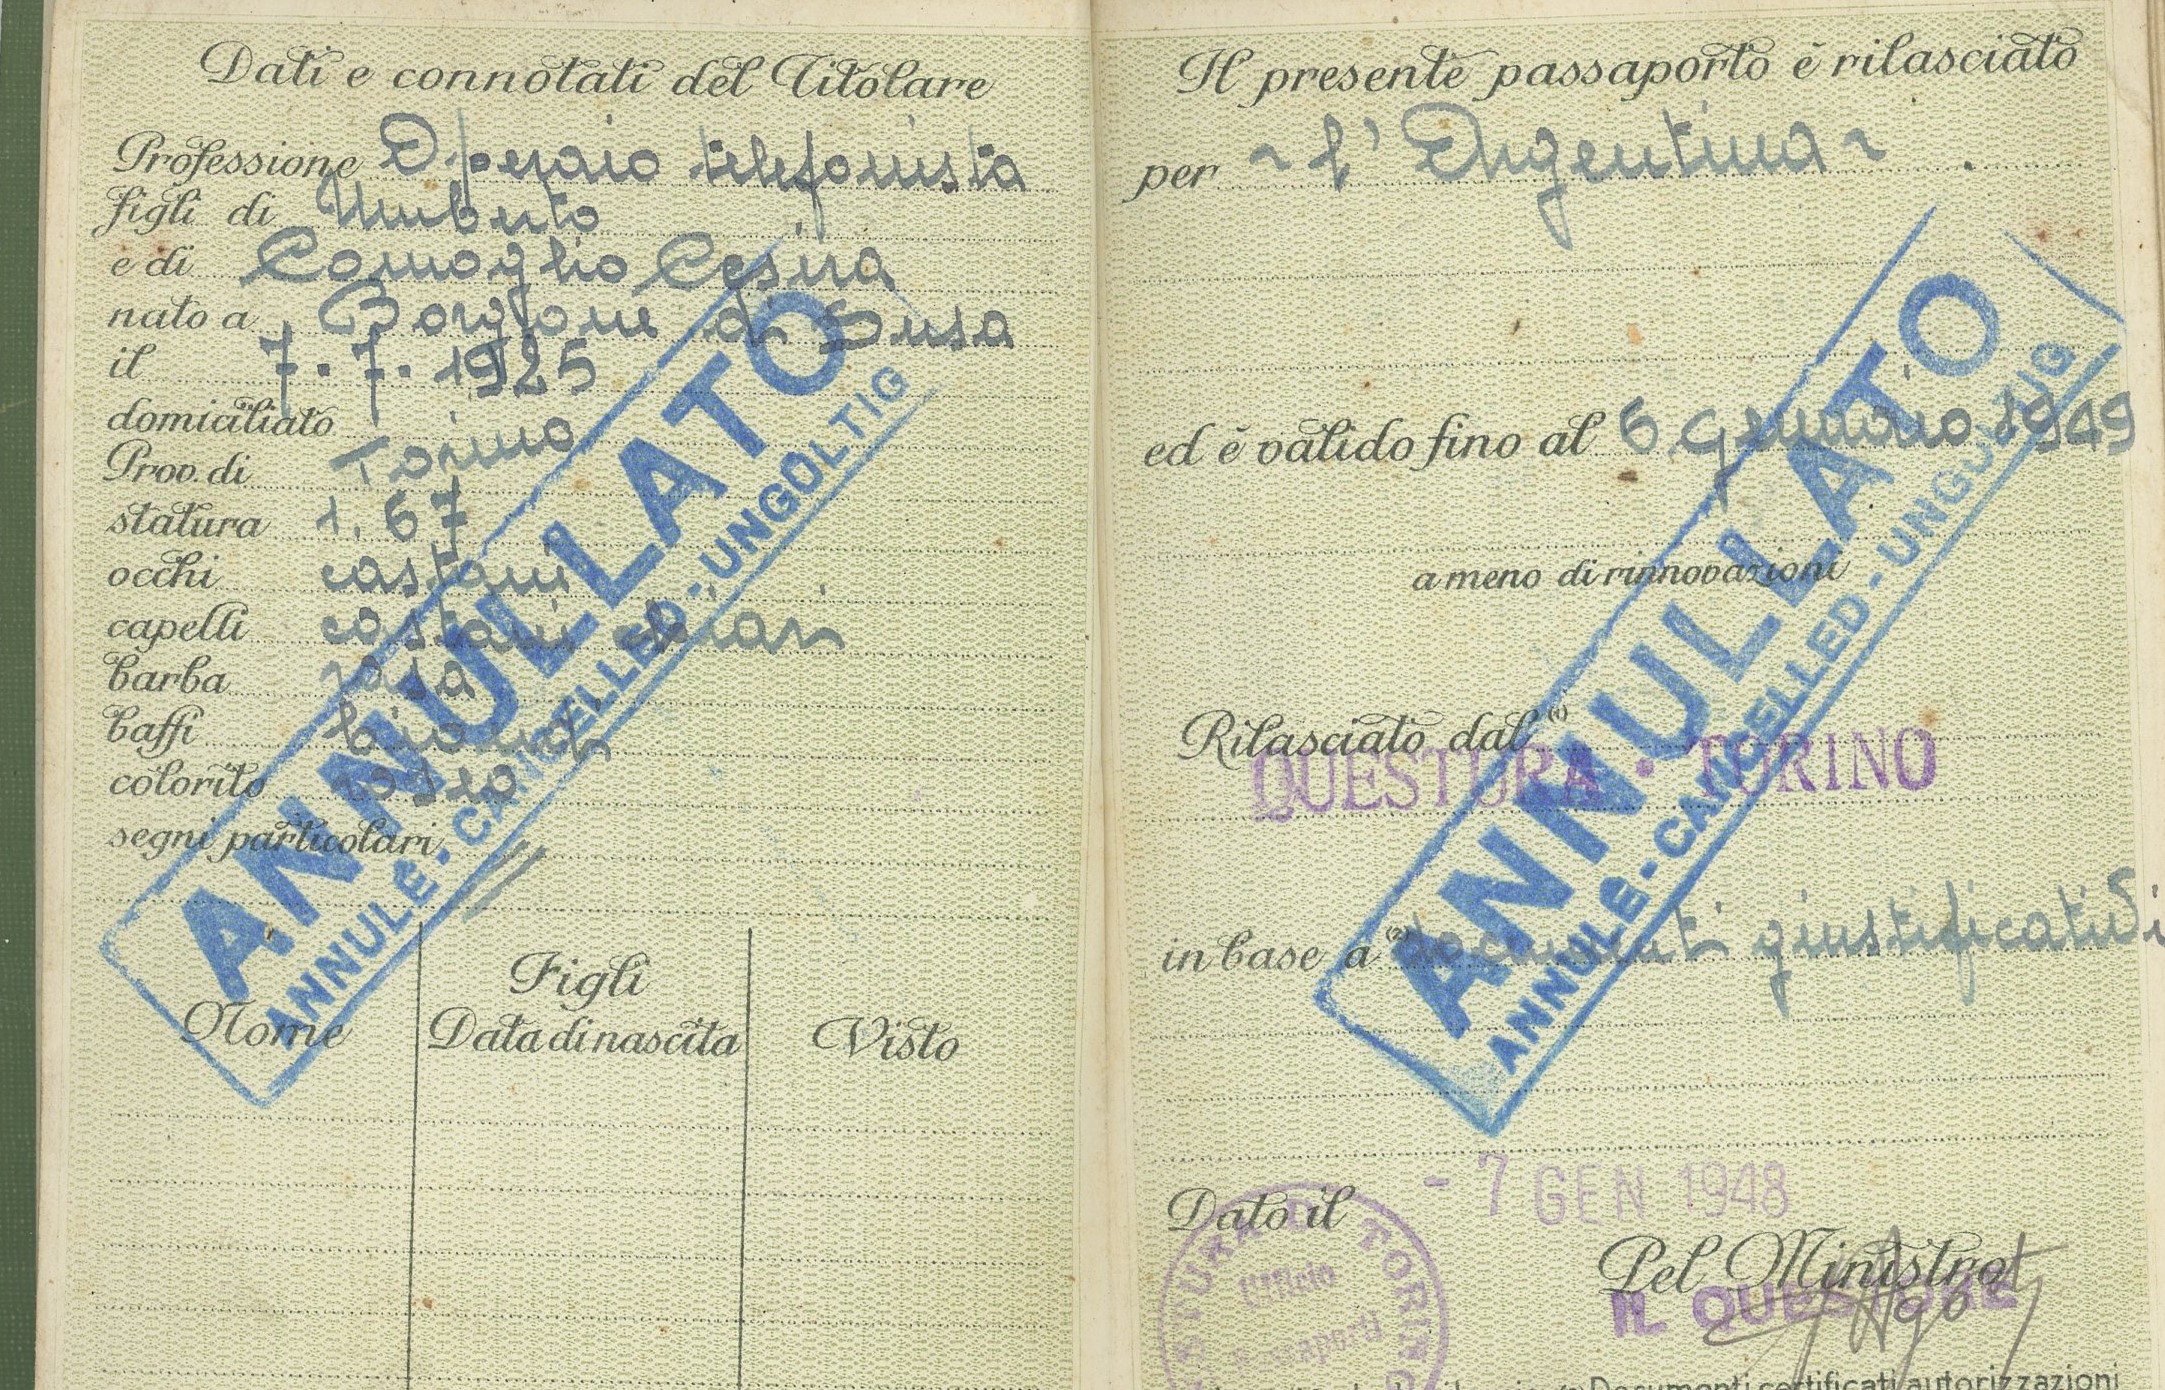 Dati e connotati del Titolare
Professione Operaio telefonista
figli di Umberto
e di Comoglio Cesira
nato a Borgone di Susa
il 7.7.1925
domiciliato
Prov. di Torino
statura 1.67
occhi castani
capelli castani chiari
barba rasa
baffi
colorito roseo
segni particolari //
ANNULLATO
ANNULÉ - CANCELLED - UNGOLTIG
Figli
Nome Data di nascita Visto
Il presente passaporto è rilasciato
per ~ l'Argentina ~
ed è valido fino al 6 Gennaio 1949
a meno di rinnovazioni
Rilasciato dal (1)
QUESTURA • TORINO
in base a (2) documenti giustificativi
ANNULLATO
ANNULÉ - CANCELLED - UNGOLTIG
Dato il - 7 GEN 1948
Pel Ministro
IL QUESTORE
QUESTURA DI TORINO
Ufficio
Passaporti
Documenti certificati autorizzazioni